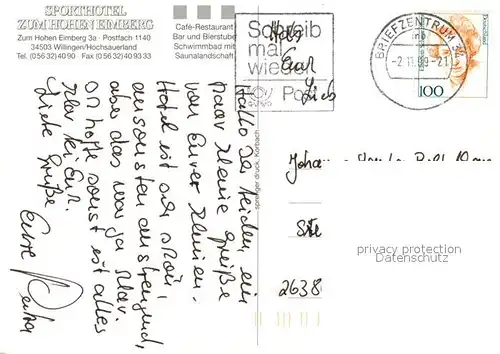 SPORTHOTEL
ZUM HOHEN EIMBERG
Zum Hohen Eimberg 3a · Postfach 1140
34503 Willingen/Hochsauerland
Tel. (0 56 32) 40 90 · Fax (0 56 32) 40 93 33
Café-Restaurant
Bar und Bierstube
Schwimmbad mit
Saunalandschaft
Schreib
mal
wieder
Post
BRIEFZENTRUM 34
mb
-2.11.99-21
Deutschland
100
Hallo Ihr beiden, ein
paar kleine Grüße
von Eurer kleinen.
Hotel ist sehr schön,
ansonsten anstrengend,
aber das war ja klar.
Ich hoffe sonst ist alles
klar bei Euch.
Liebe Grüße
Eure
sprenger druck, Korbach
2638
privacy protection
Datenschutz